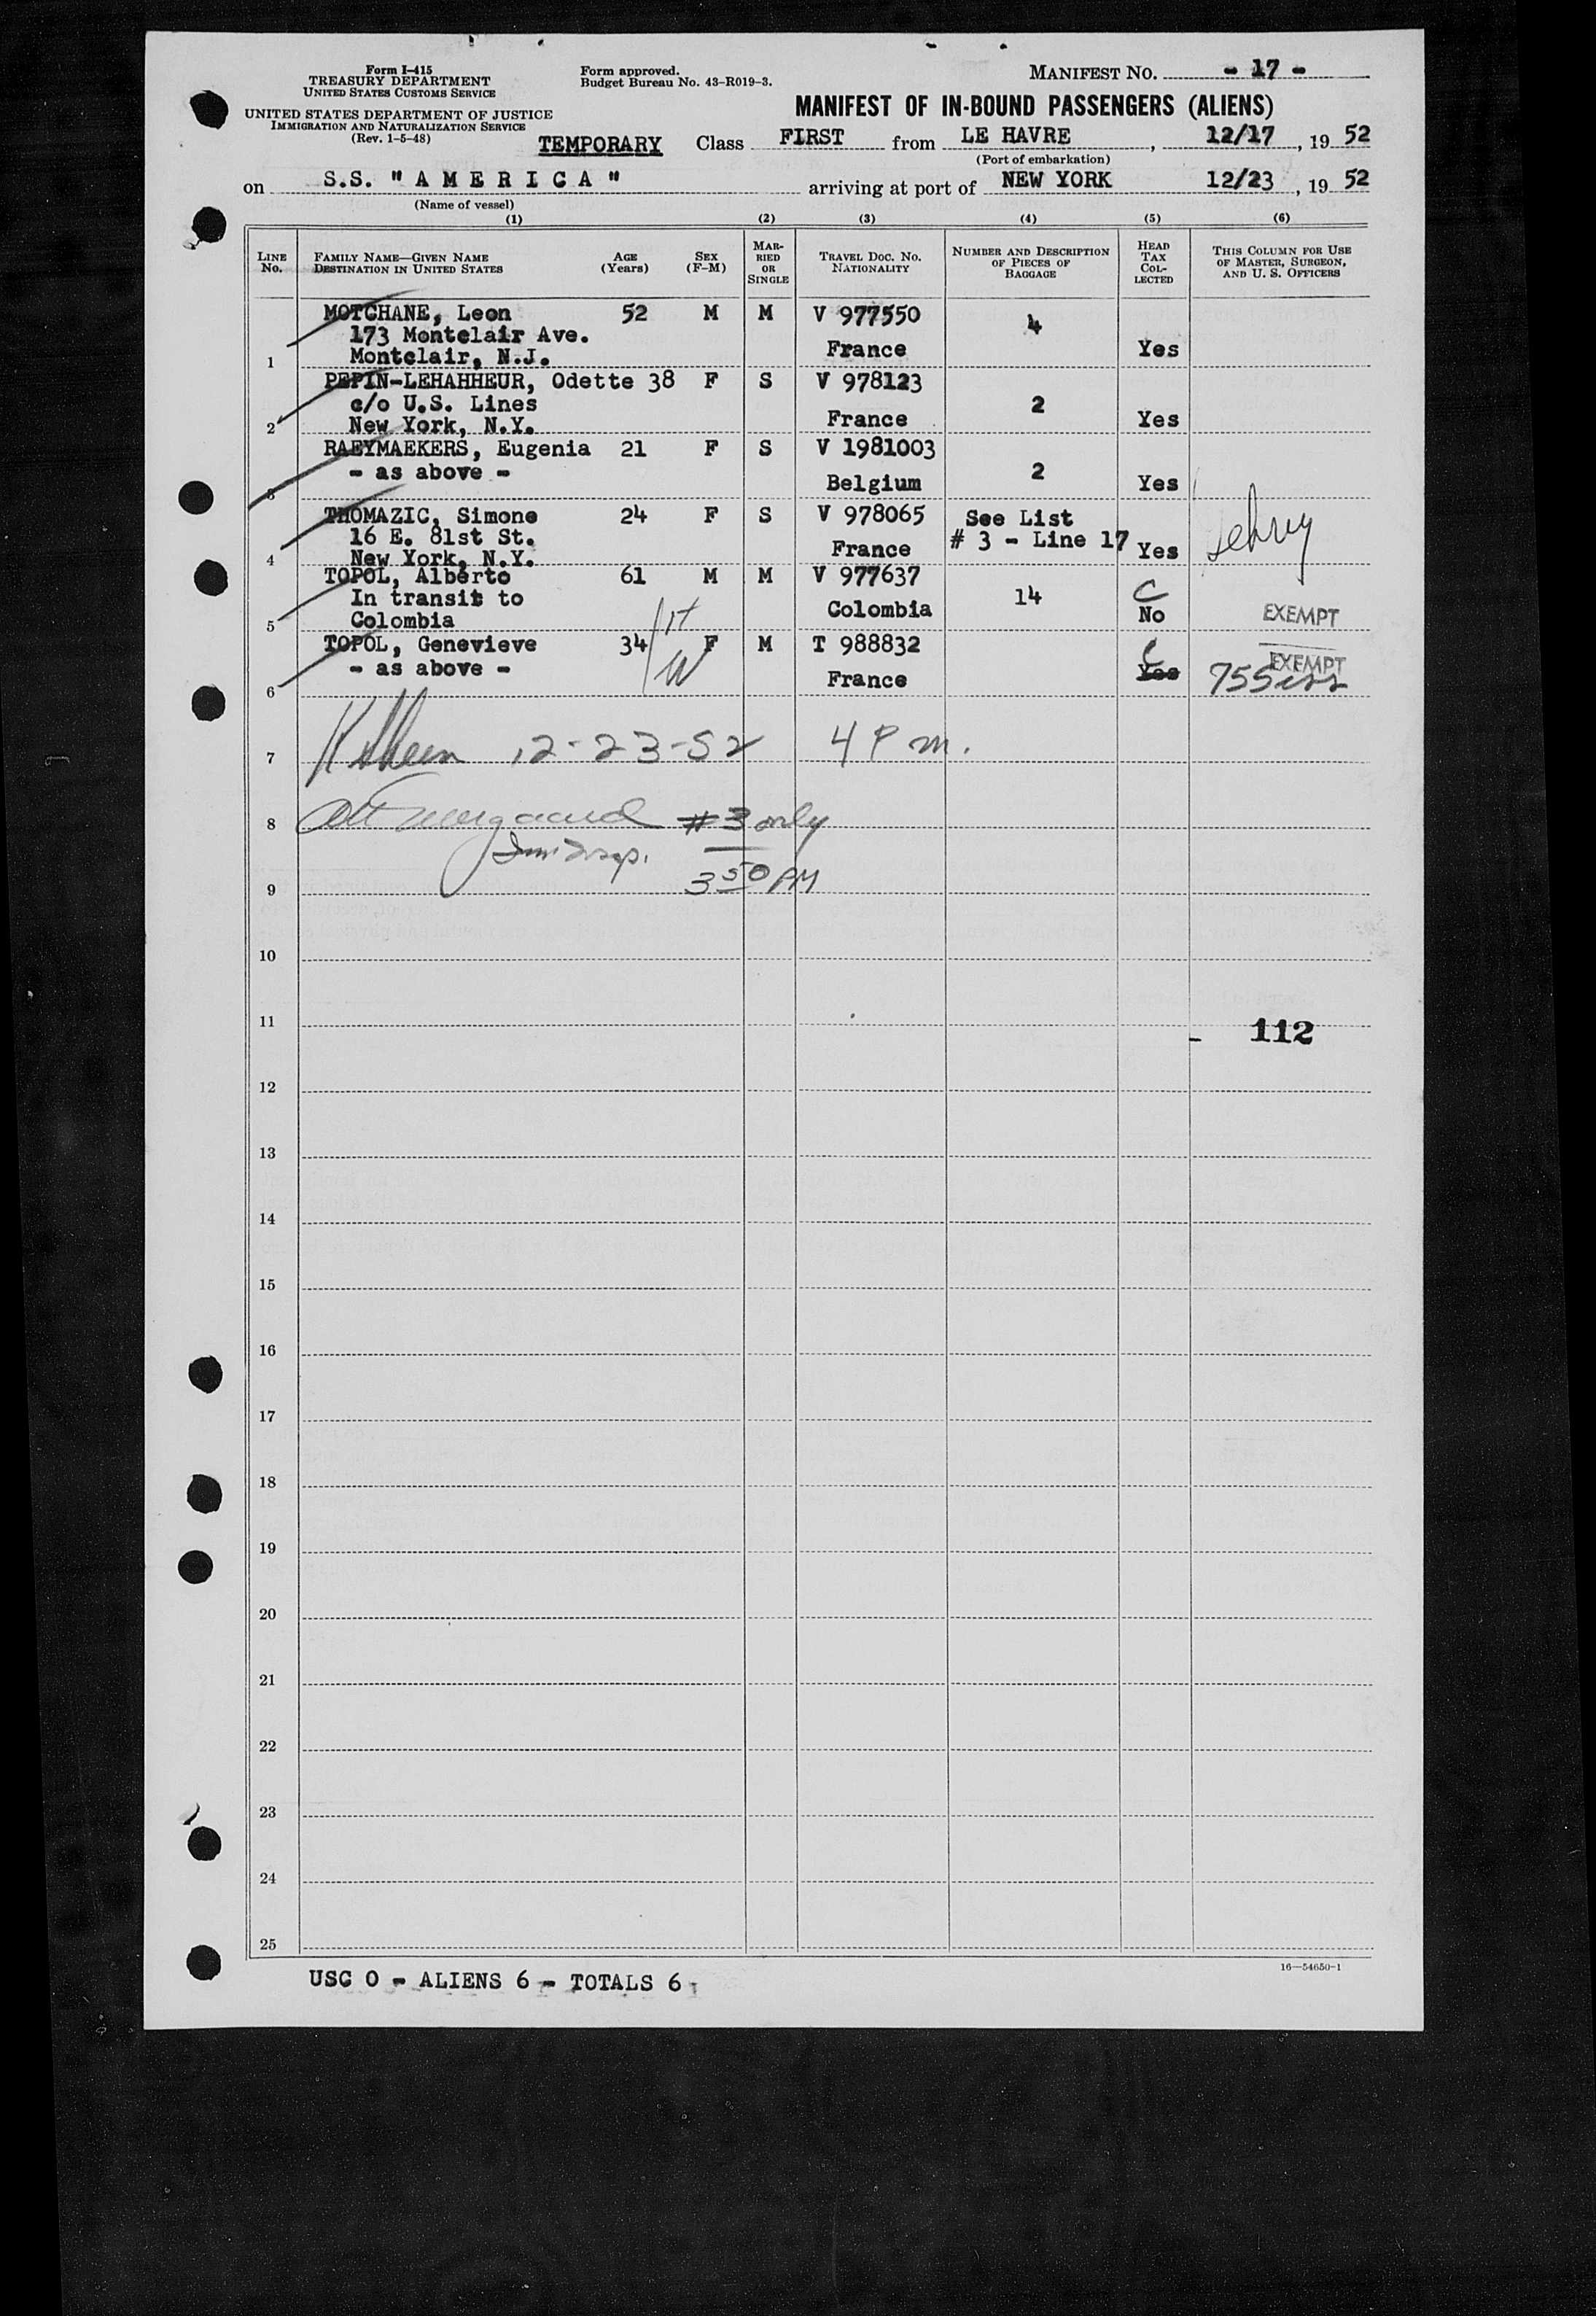 Form I-415
TREASURY DEPARTMENT
UNITED STATES CUSTOMS SERVICE
UNITED STATES DEPARTMENT OF JUSTICE
IMMIGRATION AND NATURALIZATION SERVICE
(Rev. 1-5-48)
Form approved.
Budget Bureau No. 43-R019-3.
MANIFEST NO. - 17 -
MANIFEST OF IN-BOUND PASSENGERS (ALIENS)
TEMPORARY Class FIRST from LE HAVRE, 12/17, 19 52
(Port of embarkation)
on S.S. " A M E R I C A " arriving at port of NEW YORK 12/23, 19 52
(Name of vessel)
(1) (2) (3) (4) (5) (6)
LINE No. FAMILY NAME—GIVEN NAME DESTINATION IN UNITED STATES AGE (Years) SEX (F-M) MARRIED OR SINGLE TRAVEL DOC. NO. NATIONALITY NUMBER AND DESCRIPTION OF PIECES OF BAGGAGE HEAD TAX COLLECTED THIS COLUMN FOR USE OF MASTER, SURGEON, AND U. S. OFFICERS
MOTCHANE, Leon 52 M M V 977550 4
173 Montclair Ave.
1 Montclair, N.J. France Yes
PEPIN-LEHAHHEUR, Odette 38 F S V 978123
c/o U.S. Lines 2
2 New York, N.Y. France Yes
RAEYMAEKERS, Eugenia 21 F S V 1981003
- as above - 2
3 Belgium Yes
THOMAZIC, Simone 24 F S V 978065 See List
16 E. 81st St. # 3 - Line 17
4 New York, N.Y. France Yes
TOPOL, Alberto 61 M M V 977637
In transit to 14 C
5 Colombia H Colombia No EXEMPT
TOPOL, Genevieve 34 F M T 988832 C
- as above - W EXEMPT
6 France Yes 755
7 12-23-52 4 P m.
8 #3 only
9 3 50 PM
10
11 - 112
12
13
14
15
16
17
18
19
20
21
22
23
24
25
16—54650-1
USC 0 - ALIENS 6 - TOTALS 6